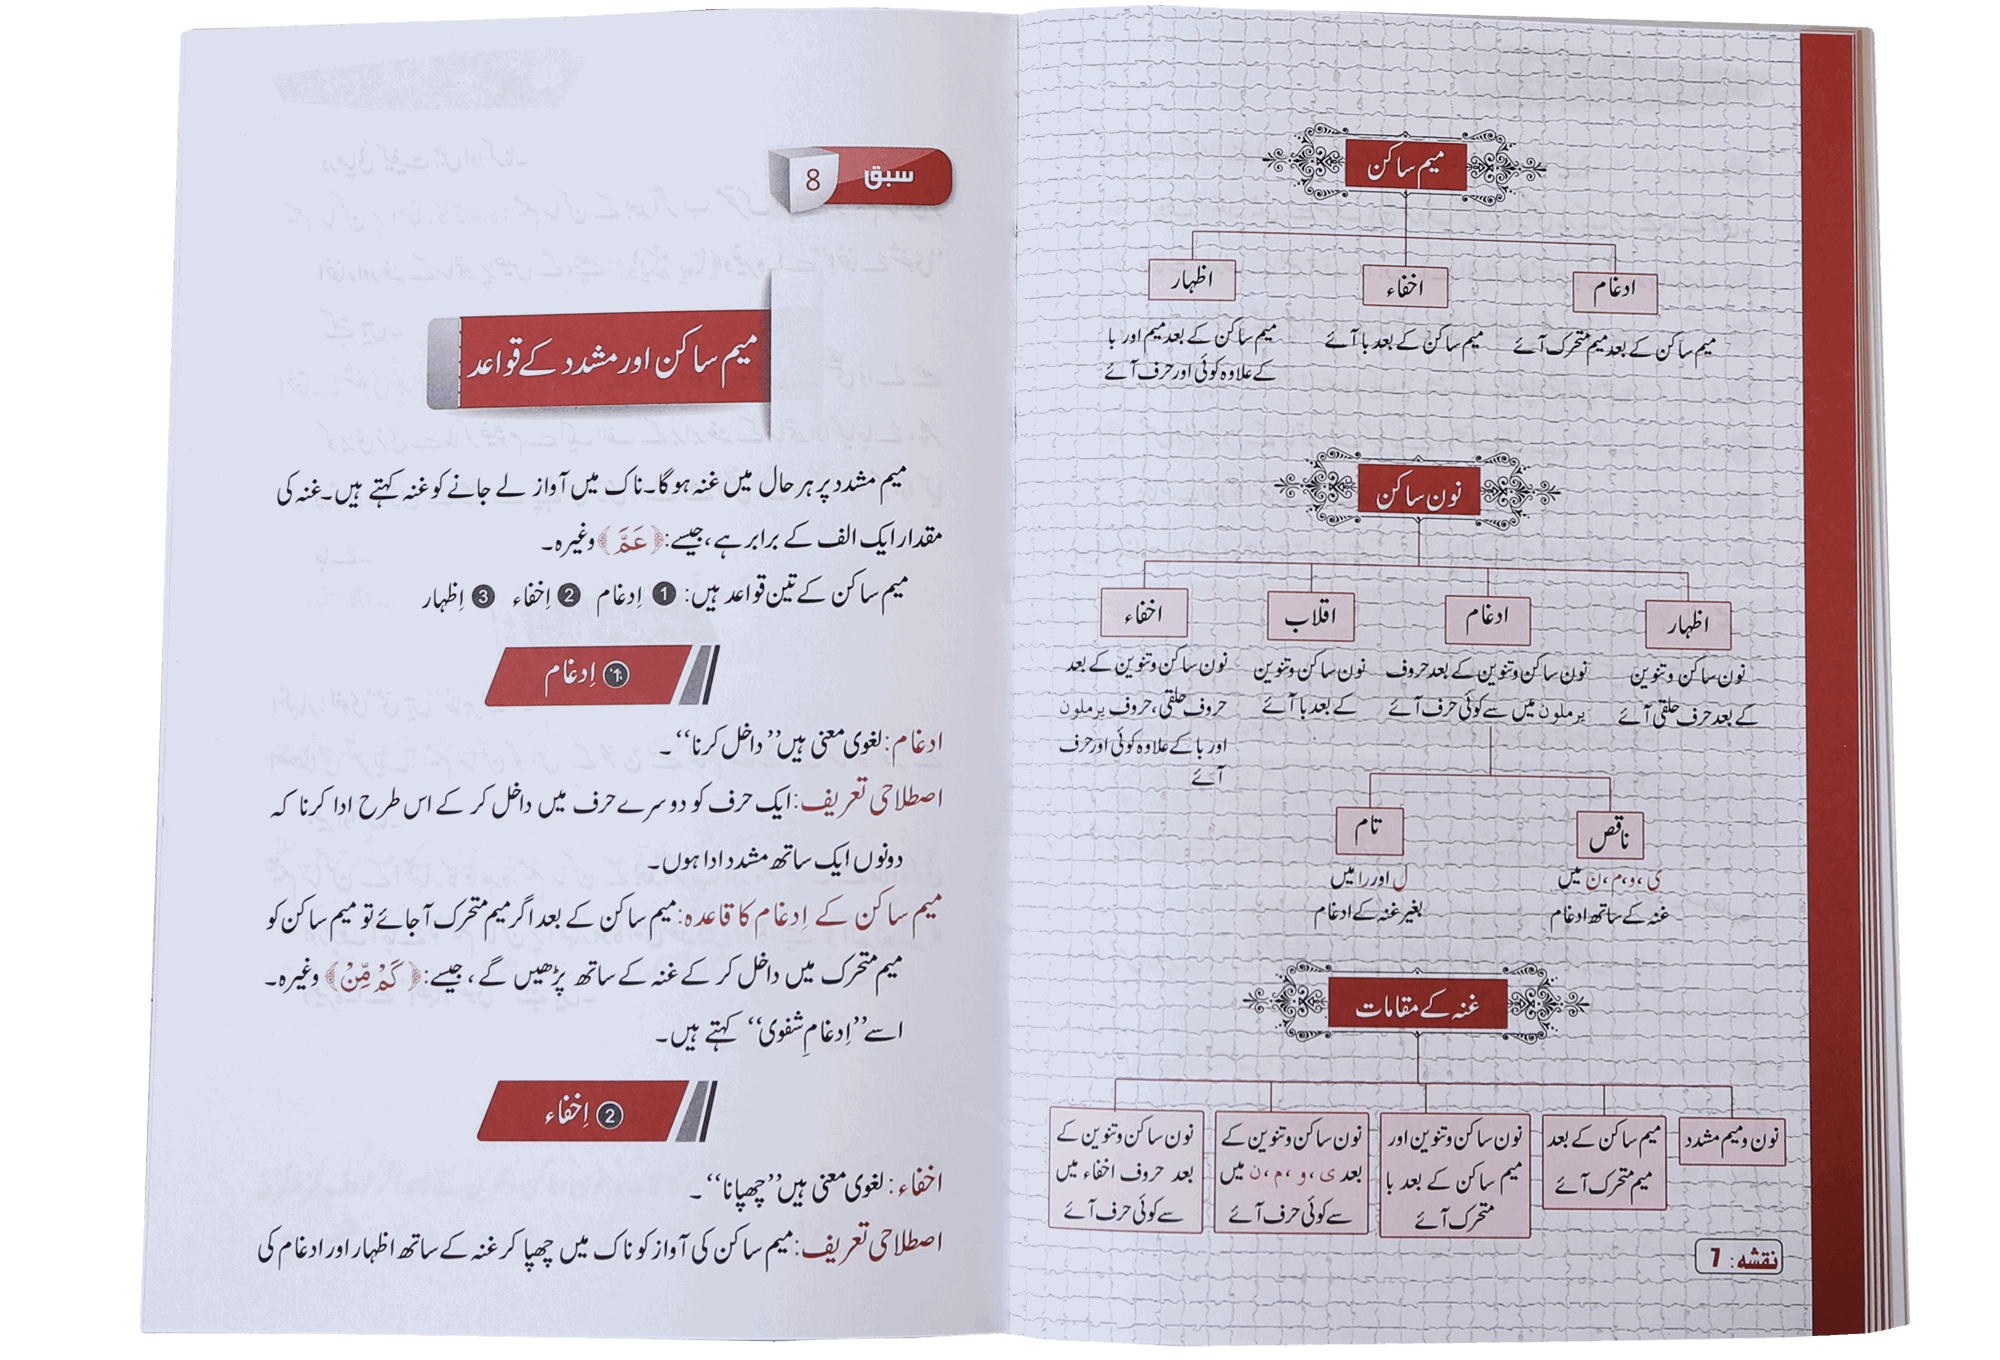 میم ساکن
ادغام
اخفاء
اظہار
میم ساکن کے بعد میم متحرک آئے
میم ساکن کے بعد با آئے
میم ساکن کے بعد میم اور با
کے علاوہ کوئی اور حرف آئے
نون ساکن
اظہار
ادغام
اقلاب
اخفاء
نون ساکن و تنوین
کے بعد حرف حلقی آئے
نون ساکن و تنوین کے بعد حروف
یرملون میں سے کوئی حرف آئے
نون ساکن و تنوین
کے بعد با آئے
نون ساکن و تنوین کے بعد
حروف حلقی، حروف یرملون
اور با کے علاوہ کوئی اور حرف
آئے
ناقص
تام
ی، و، م، ن میں
غنہ کے ساتھ ادغام
ل اور را میں
بغیر غنہ کے ادغام
غنہ کے مقامات
نون و میم مشدد
میم ساکن کے بعد
میم متحرک آئے
نون ساکن و تنوین اور
میم ساکن کے بعد با
متحرک آئے
نون ساکن و تنوین کے
بعد ی، و، م، ن میں
سے کوئی حرف آئے
نون ساکن و تنوین کے
بعد حروف اخفاء میں
سے کوئی حرف آئے
نقشہ: 7
سبق 8
میم ساکن اور مشدد کے قواعد
میم مشدد پر ہر حال میں غنہ ہوگا۔ ناک میں آواز لے جانے کو غنہ کہتے ہیں۔ غنہ کی
مقدار ایک الف کے برابر ہے، جیسے: ﴿عَمَّ﴾ وغیرہ۔
میم ساکن کے تین قواعد ہیں: 1 اِدغام 2 اِخفاء 3 اِظہار
1 اِدغام
ادغام: لغوی معنی ہیں ’’داخل کرنا‘‘۔
اصطلاحی تعریف: ایک حرف کو دوسرے حرف میں داخل کر کے اس طرح ادا کرنا کہ
دونوں ایک ساتھ مشدد ادا ہوں۔
میم ساکن کے اِدغام کا قاعدہ: میم ساکن کے بعد اگر میم متحرک آ جائے تو میم ساکن کو
میم متحرک میں داخل کر کے غنہ کے ساتھ پڑھیں گے، جیسے: ﴿كَمْ مِّنْ﴾ وغیرہ۔
اسے ’’اِدغامِ شفوی‘‘ کہتے ہیں۔
2 اِخفاء
اخفاء: لغوی معنی ہیں ’’چھپانا‘‘۔
اصطلاحی تعریف: میم ساکن کی آواز کو ناک میں چھپا کر غنہ کے ساتھ اظہار اور ادغام کی